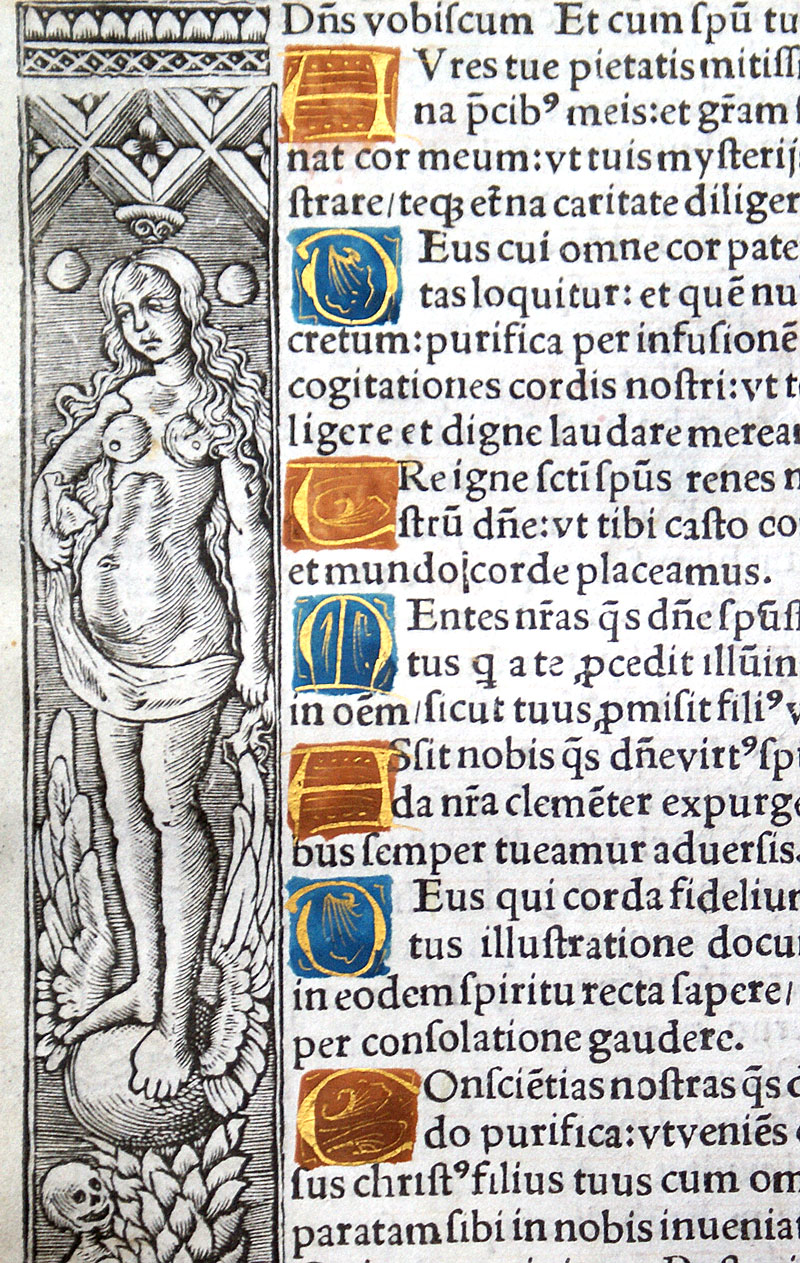 Dn̄s vobiſcum Et cum ſpū tu
AVres tue pietatis mitiſſi
na p̄cibꝰ meis:et gr̄am
nat cor meum:vt tuis myſterij
ſtrare/teqꝫ et̄na caritate diliger
DEus cui omne cor pate
tas loquitur: et quē nu
cretum:purifica per infuſionē
cogitationes cordis noſtri:vt t
ligere et digne laudare merea
VRe igne ſctī ſpūs renes n
ſtrū dn̄e:vt tibi caſto co
et mundo corde placeamus.
MEntes nr̄as q̄s dn̄e ſpūſ
tus q a te ꝓcedit illūin
in oēm/ſicut tuus ꝓmiſit filiꝰ v
ASſit nobis q̄s dn̄e virtꝰ ſp
da nr̄a clemēter expurge
bus ſemper tueamur aduerſis.
DEus qui corda fideliu
tus illuſtratione docu
in eodem ſpiritu recta ſapere/
per conſolatione gaudere.
COnſciētias noſtras q̄s d
do purifica:vt veniēs
ſus chriſtꝰ filius tuus cum om
paratam ſibi in nobis inuenia